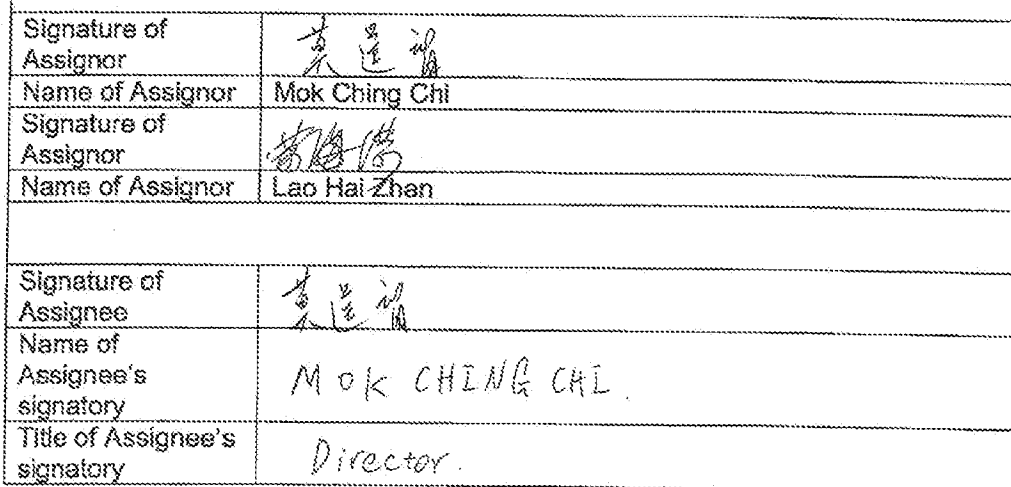 Signature of
Assignor
Name of Assignor Mok Ching Chi
Signature of
Assignor
Name of Assignor Lao Hai Zhan
Signature of
Assignee
Name of
Assignee's
signatory
MOK CHING CHI.
Title of Assignee's
signatory
Director.